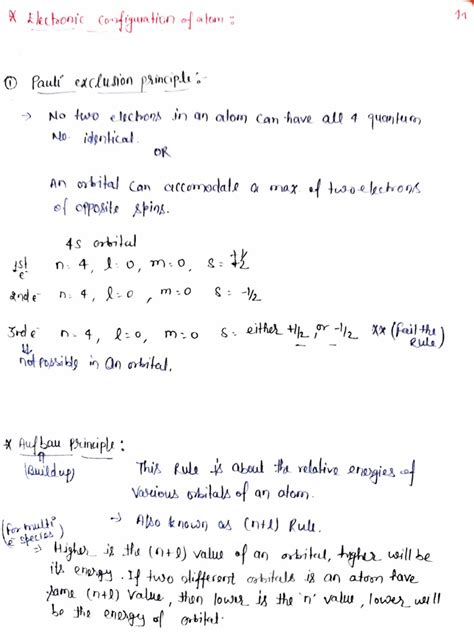 * Electronic configuration of atom :
11
① Pauli exclusion principle :-
→ No two electrons in an atom can have all 4 quantum
No. identical.
OR
An orbital can accomodate a max of two electrons
of opposite spins.
4s orbital
1st e⁻ n = 4, l = 0, m = 0, s = +1/2
2nd e⁻ n = 4, l = 0, m = 0 s = -1/2
3rd e⁻ n = 4, l = 0, m = 0 s = either +1/2, or -1/2 ** (Fail the Rule)
not possible in an orbital.
* Aufbau Principle :
(Build up)
This Rule is about the relative energies of
various orbitals of an atom.
→ Also known as (n+l) Rule.
(for multi e⁻ species)
→ Higher is the (n+l) value of an orbital, higher will be
its energy. If two different orbitals is an atom have
same (n+l) value, then lower is the 'n' value, lower will
be the energy of orbital.